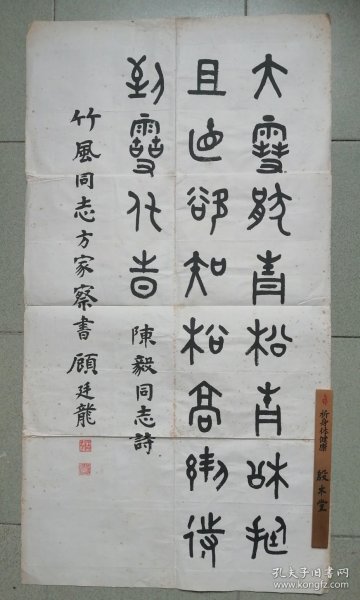 大雪猒青松青松挺
且直欲知松高絜待
到雪化旹 陳毅同志詩
竹風同志方家察書 顧廷龍
祈身体健康
孔夫子旧书网